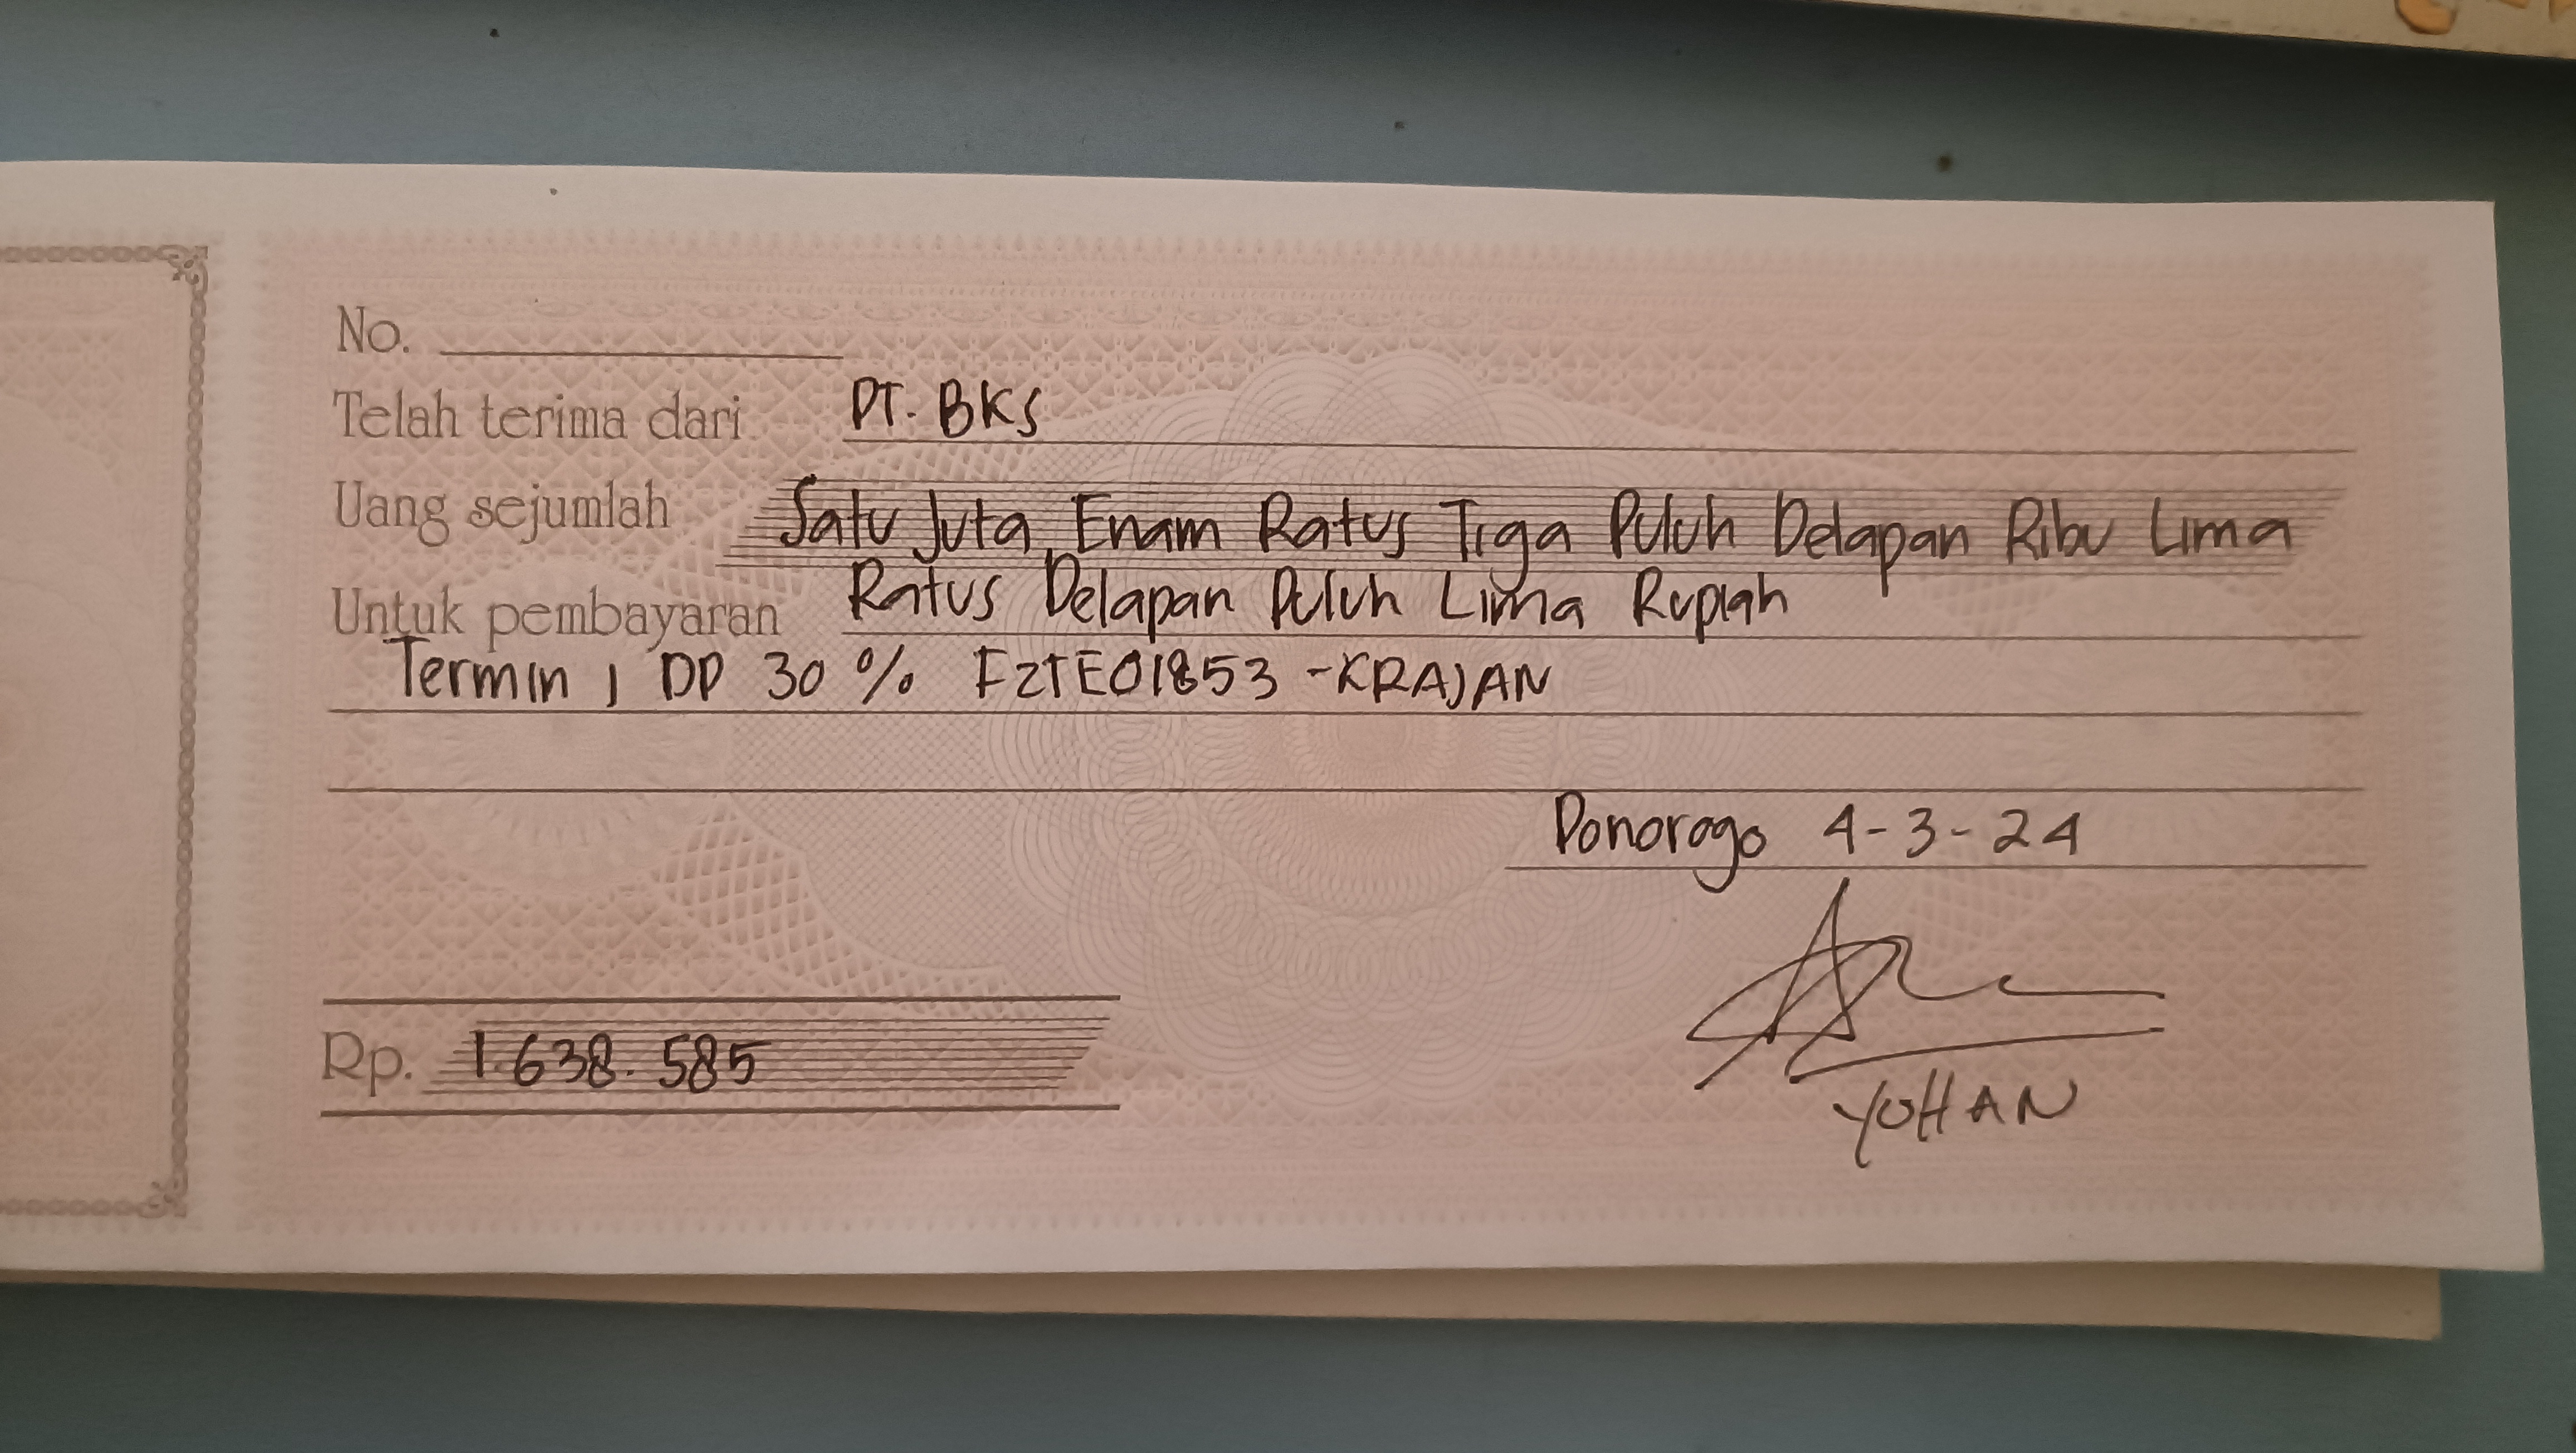 No.
Telah terima dari PT. BKS
Uang sejumlah Satu Juta Enam Ratus Tiga Puluh Delapan Ribu Lima
Untuk pembayaran Ratus Delapan Puluh Lima Rupiah
Termin 1 DP 30 % FZTE01853 -KRAJAN
Ponorogo 4-3-24
Rp. 1.638.585
YOHAN